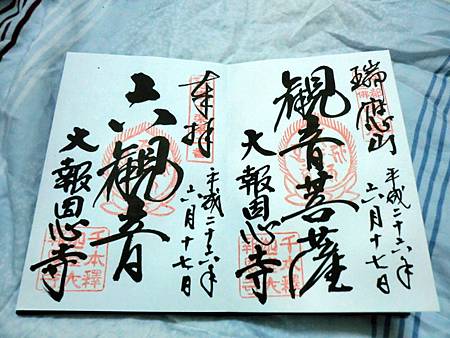 瑞應山
平成二十六年
六月十七日
観音菩薩
大報恩寺
千本釋
奉拝
平成二十六年
六月十七日
六観音
大報恩寺
千本釋